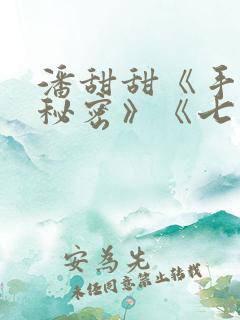 潘甜甜《手
秘密》《七
安为先
未经同意禁止转载